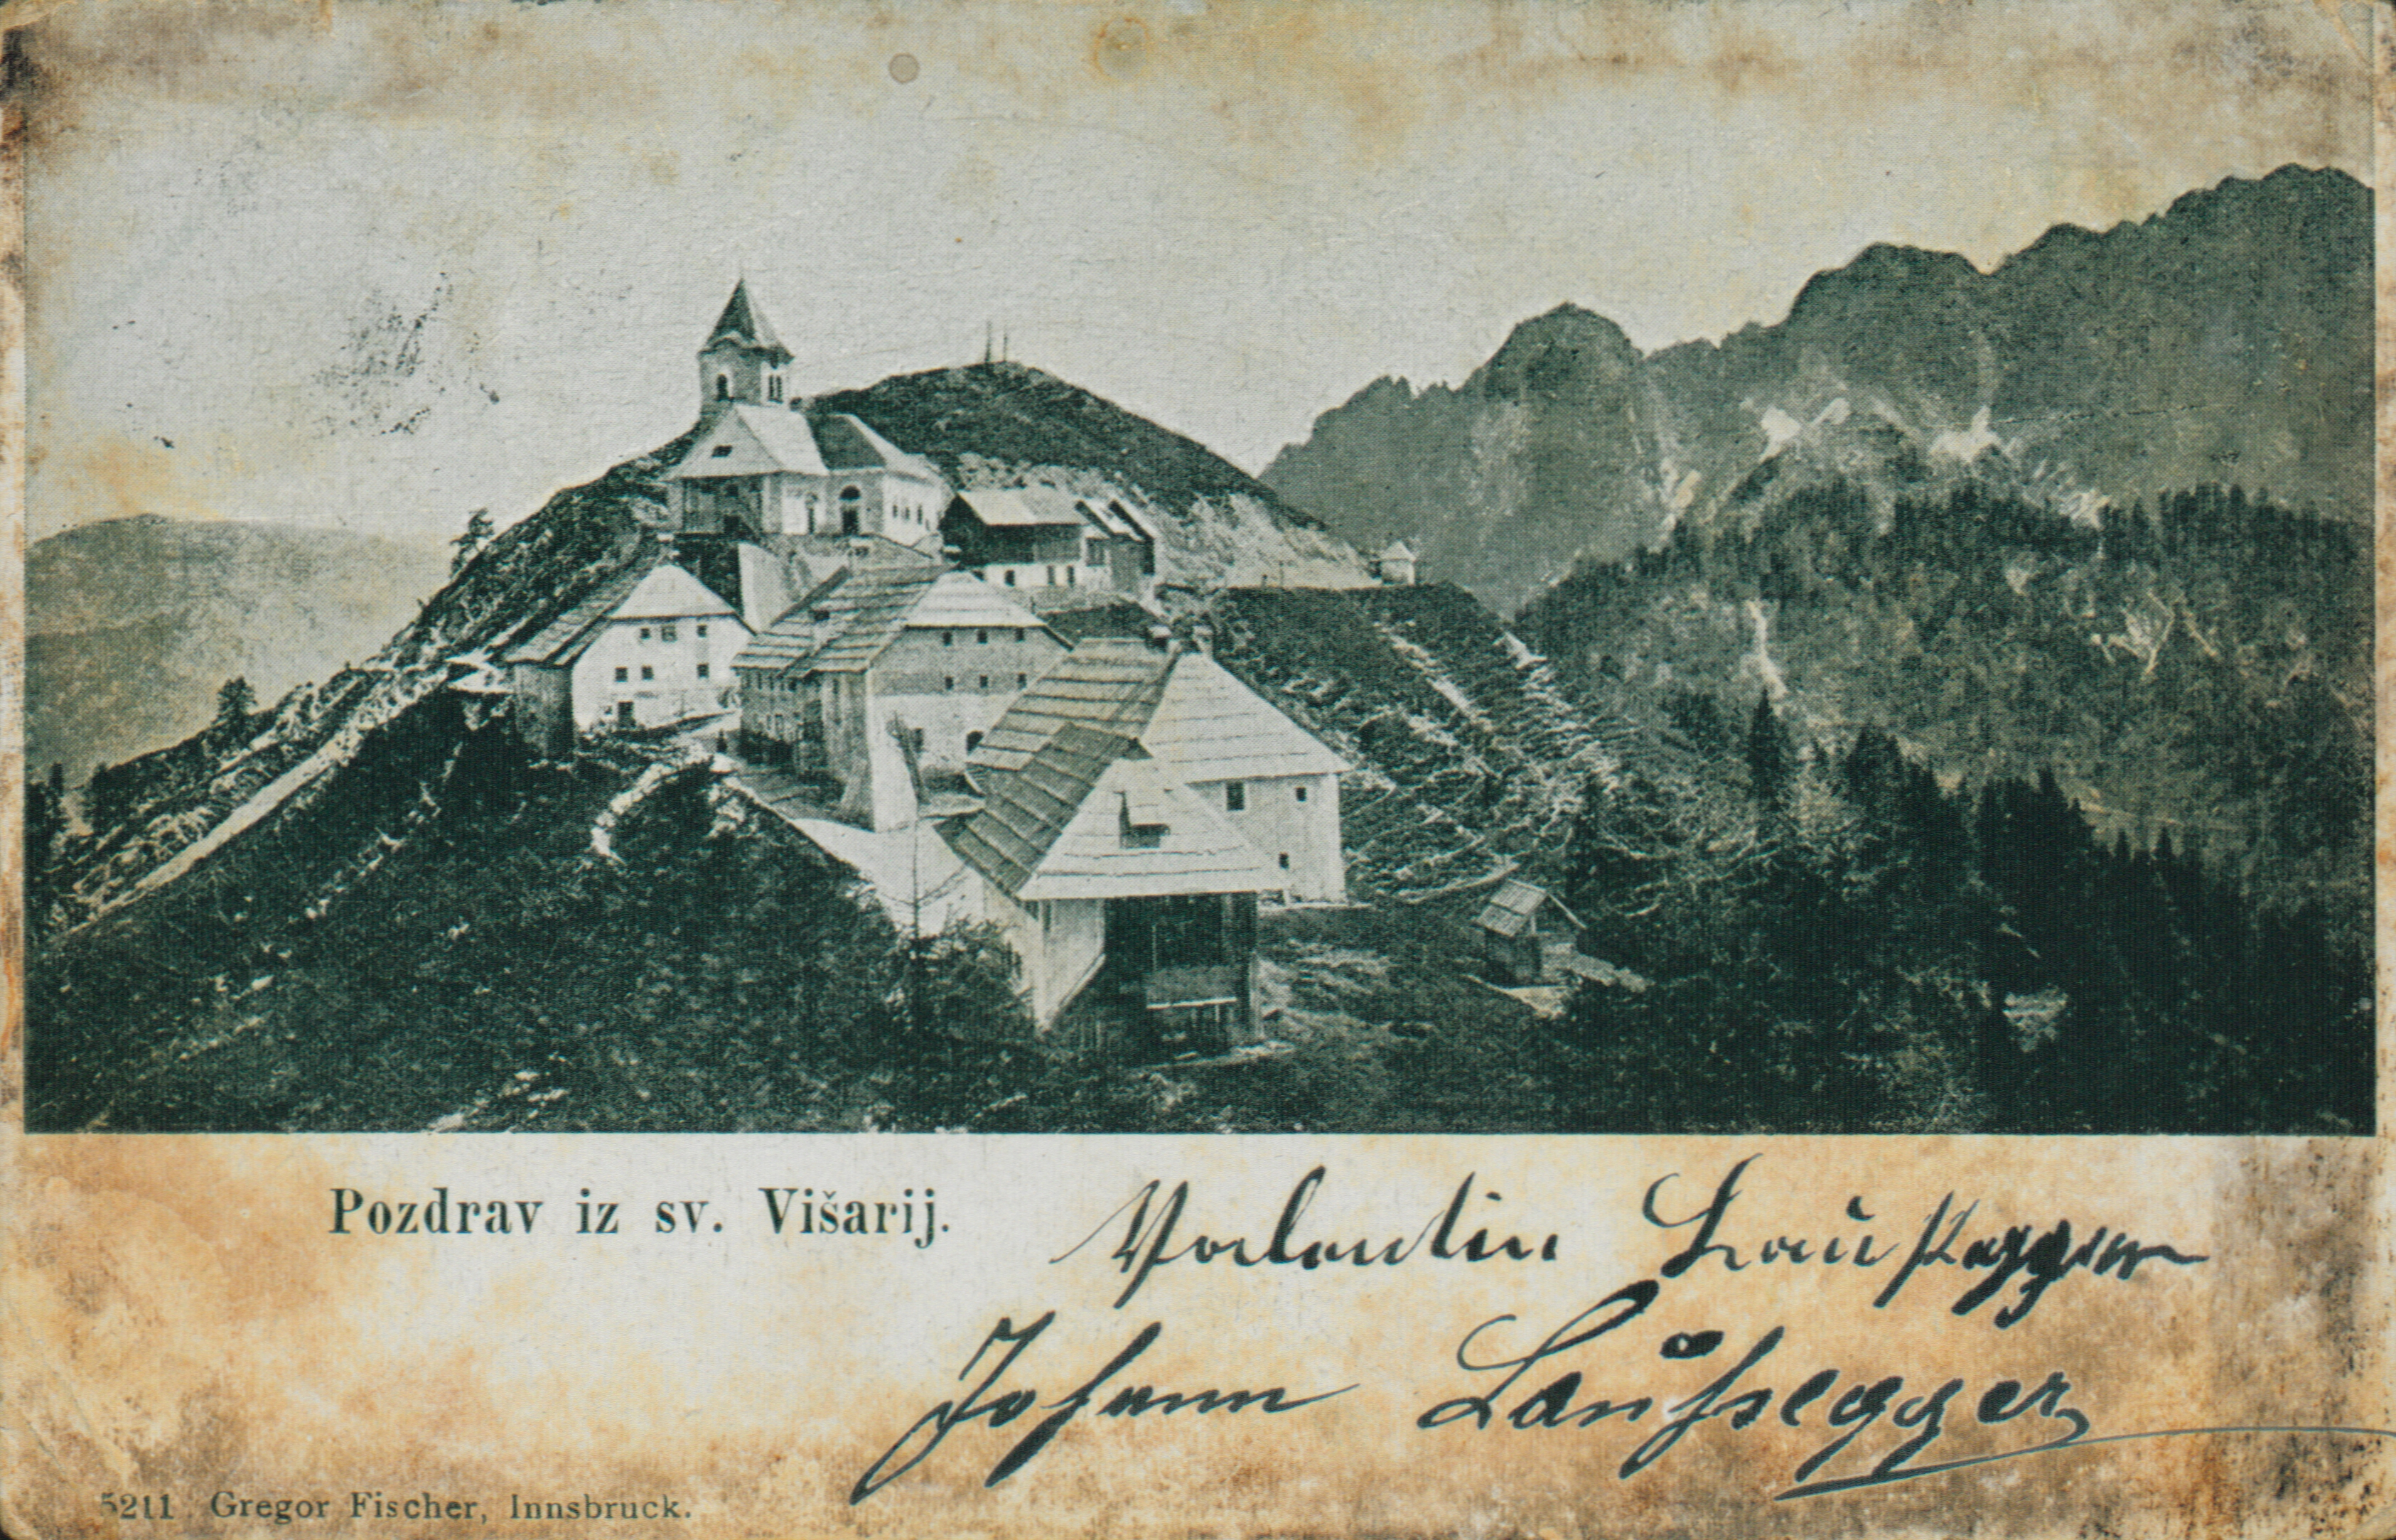 Pozdrav iz sv. Višarij.
Valentin
Johann
5211 Gregor Fischer, Innsbruck.